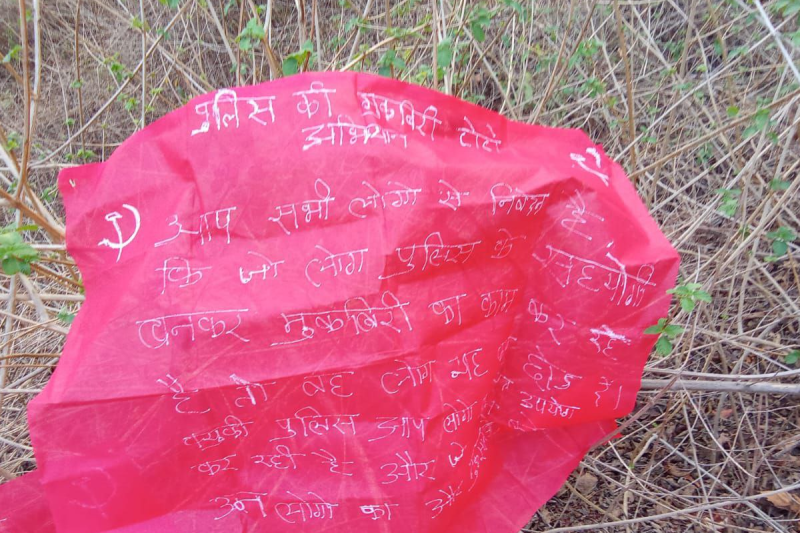 पुलिस की मुकबिरी
अभियान टोटे
आप सभी लोगों से निवेदन है
कि जो लोग पुलिस के सहयोगी
बनकर मुकबिरी का काम कर रहे
है तो वह लोग यह छोड़ दें।
पुलिस आप लोगो उपयोग
कर रही है और
उन लोगो का और